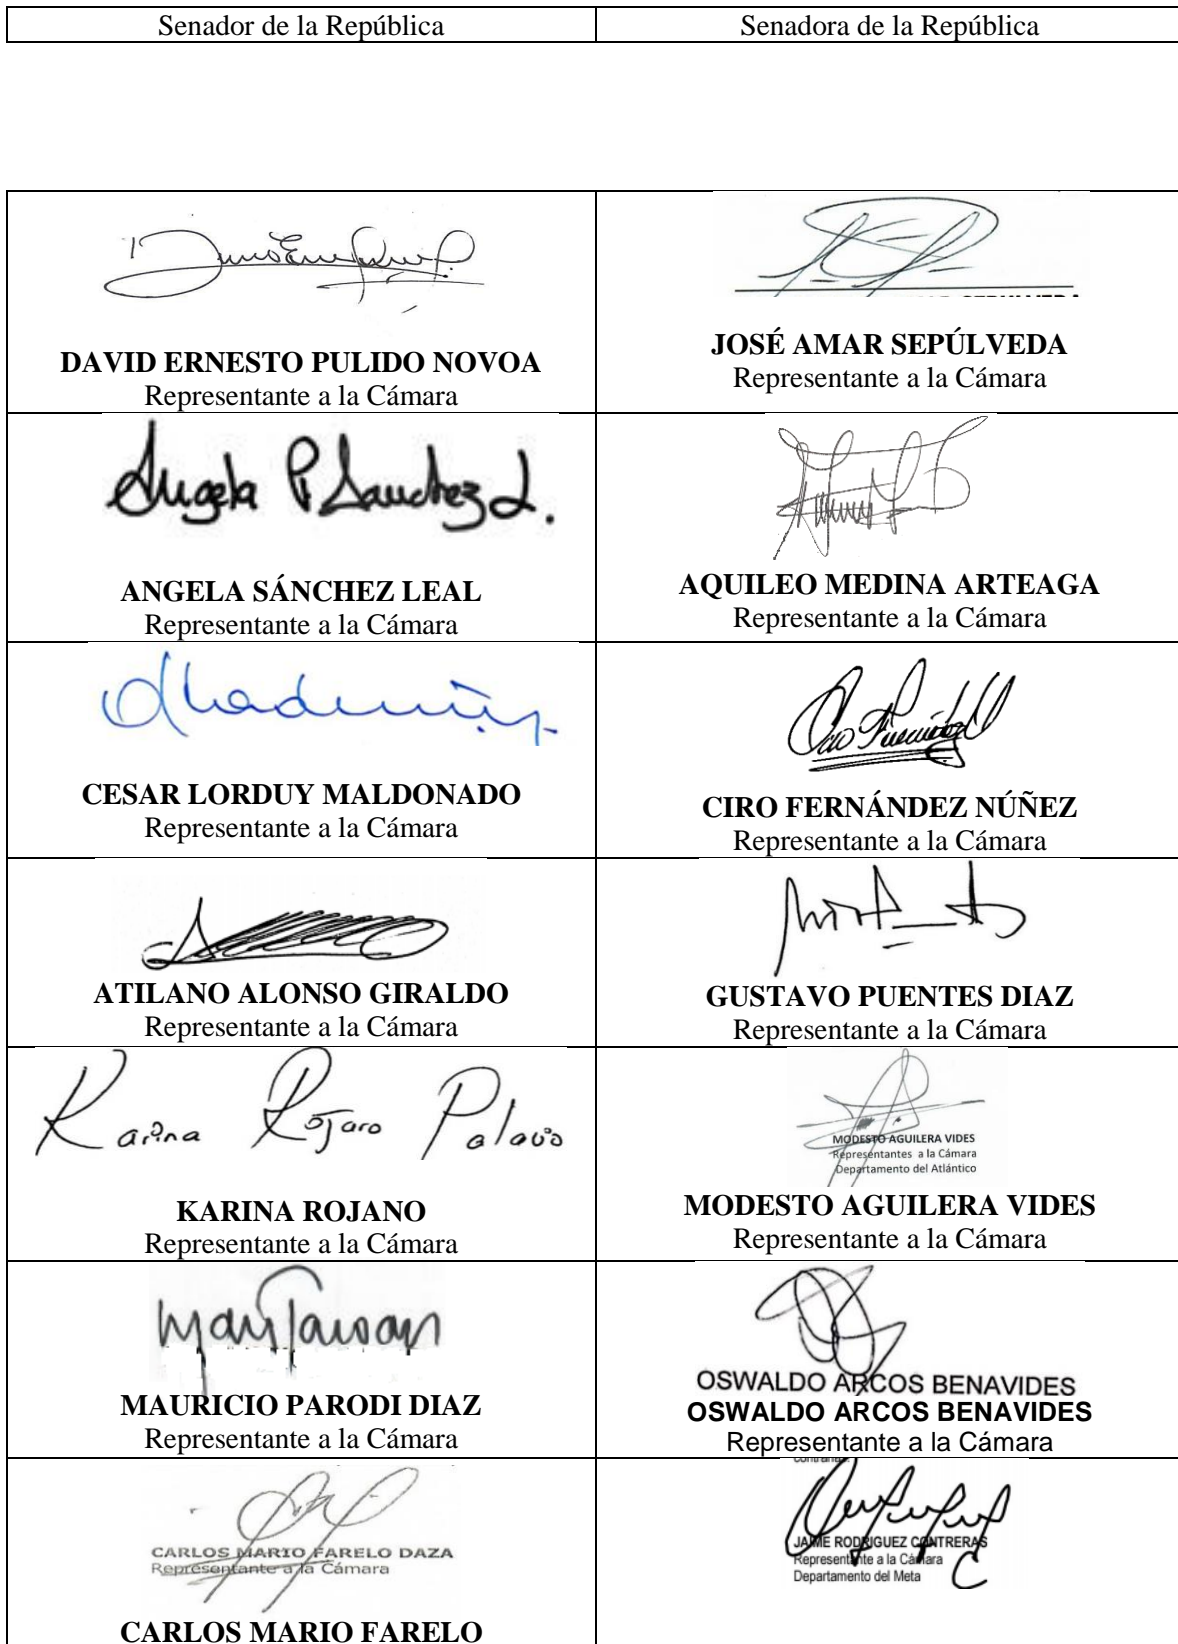 Senador de la República
Senadora de la República
DAVID ERNESTO PULIDO NOVOA
Representante a la Cámara
JOSÉ AMAR SEPÚLVEDA
Representante a la Cámara
Angela P Sanchez L.
ANGELA SÁNCHEZ LEAL
Representante a la Cámara
AQUILEO MEDINA ARTEAGA
Representante a la Cámara
CESAR LORDUY MALDONADO
Representante a la Cámara
Ciro Fernández
CIRO FERNÁNDEZ NÚÑEZ
Representante a la Cámara
ATILANO ALONSO GIRALDO
Representante a la Cámara
GUSTAVO PUENTES DIAZ
Representante a la Cámara
Karina Rojano Palacio
KARINA ROJANO
Representante a la Cámara
MODESTO AGUILERA VIDES
Representantes a la Cámara
Departamento del Atlántico
MODESTO AGUILERA VIDES
Representante a la Cámara
MAURICIO PARODI DIAZ
Representante a la Cámara
OSWALDO ARCOS BENAVIDES
OSWALDO ARCOS BENAVIDES
Representante a la Cámara
CARLOS MARIO FARELO DAZA
Representante a la Cámara
CARLOS MARIO FARELO
JAIME RODRIGUEZ CONTRERAS
Representante a la Cámara
Departamento del Meta